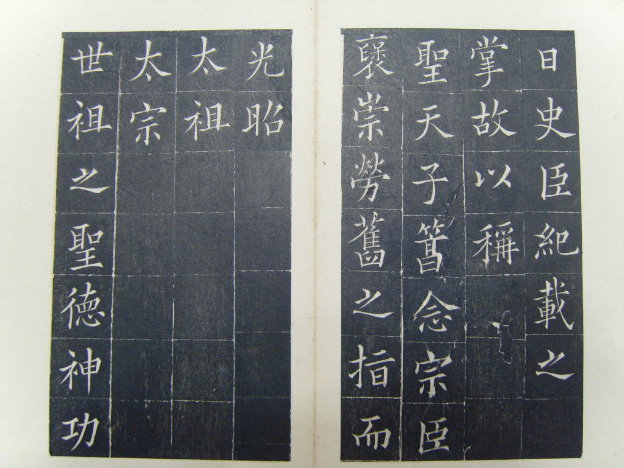 日史臣紀載之
掌故以稱
聖天子念宗臣
褒崇勞舊之指而
光昭
太祖
太宗
世祖之聖德神功